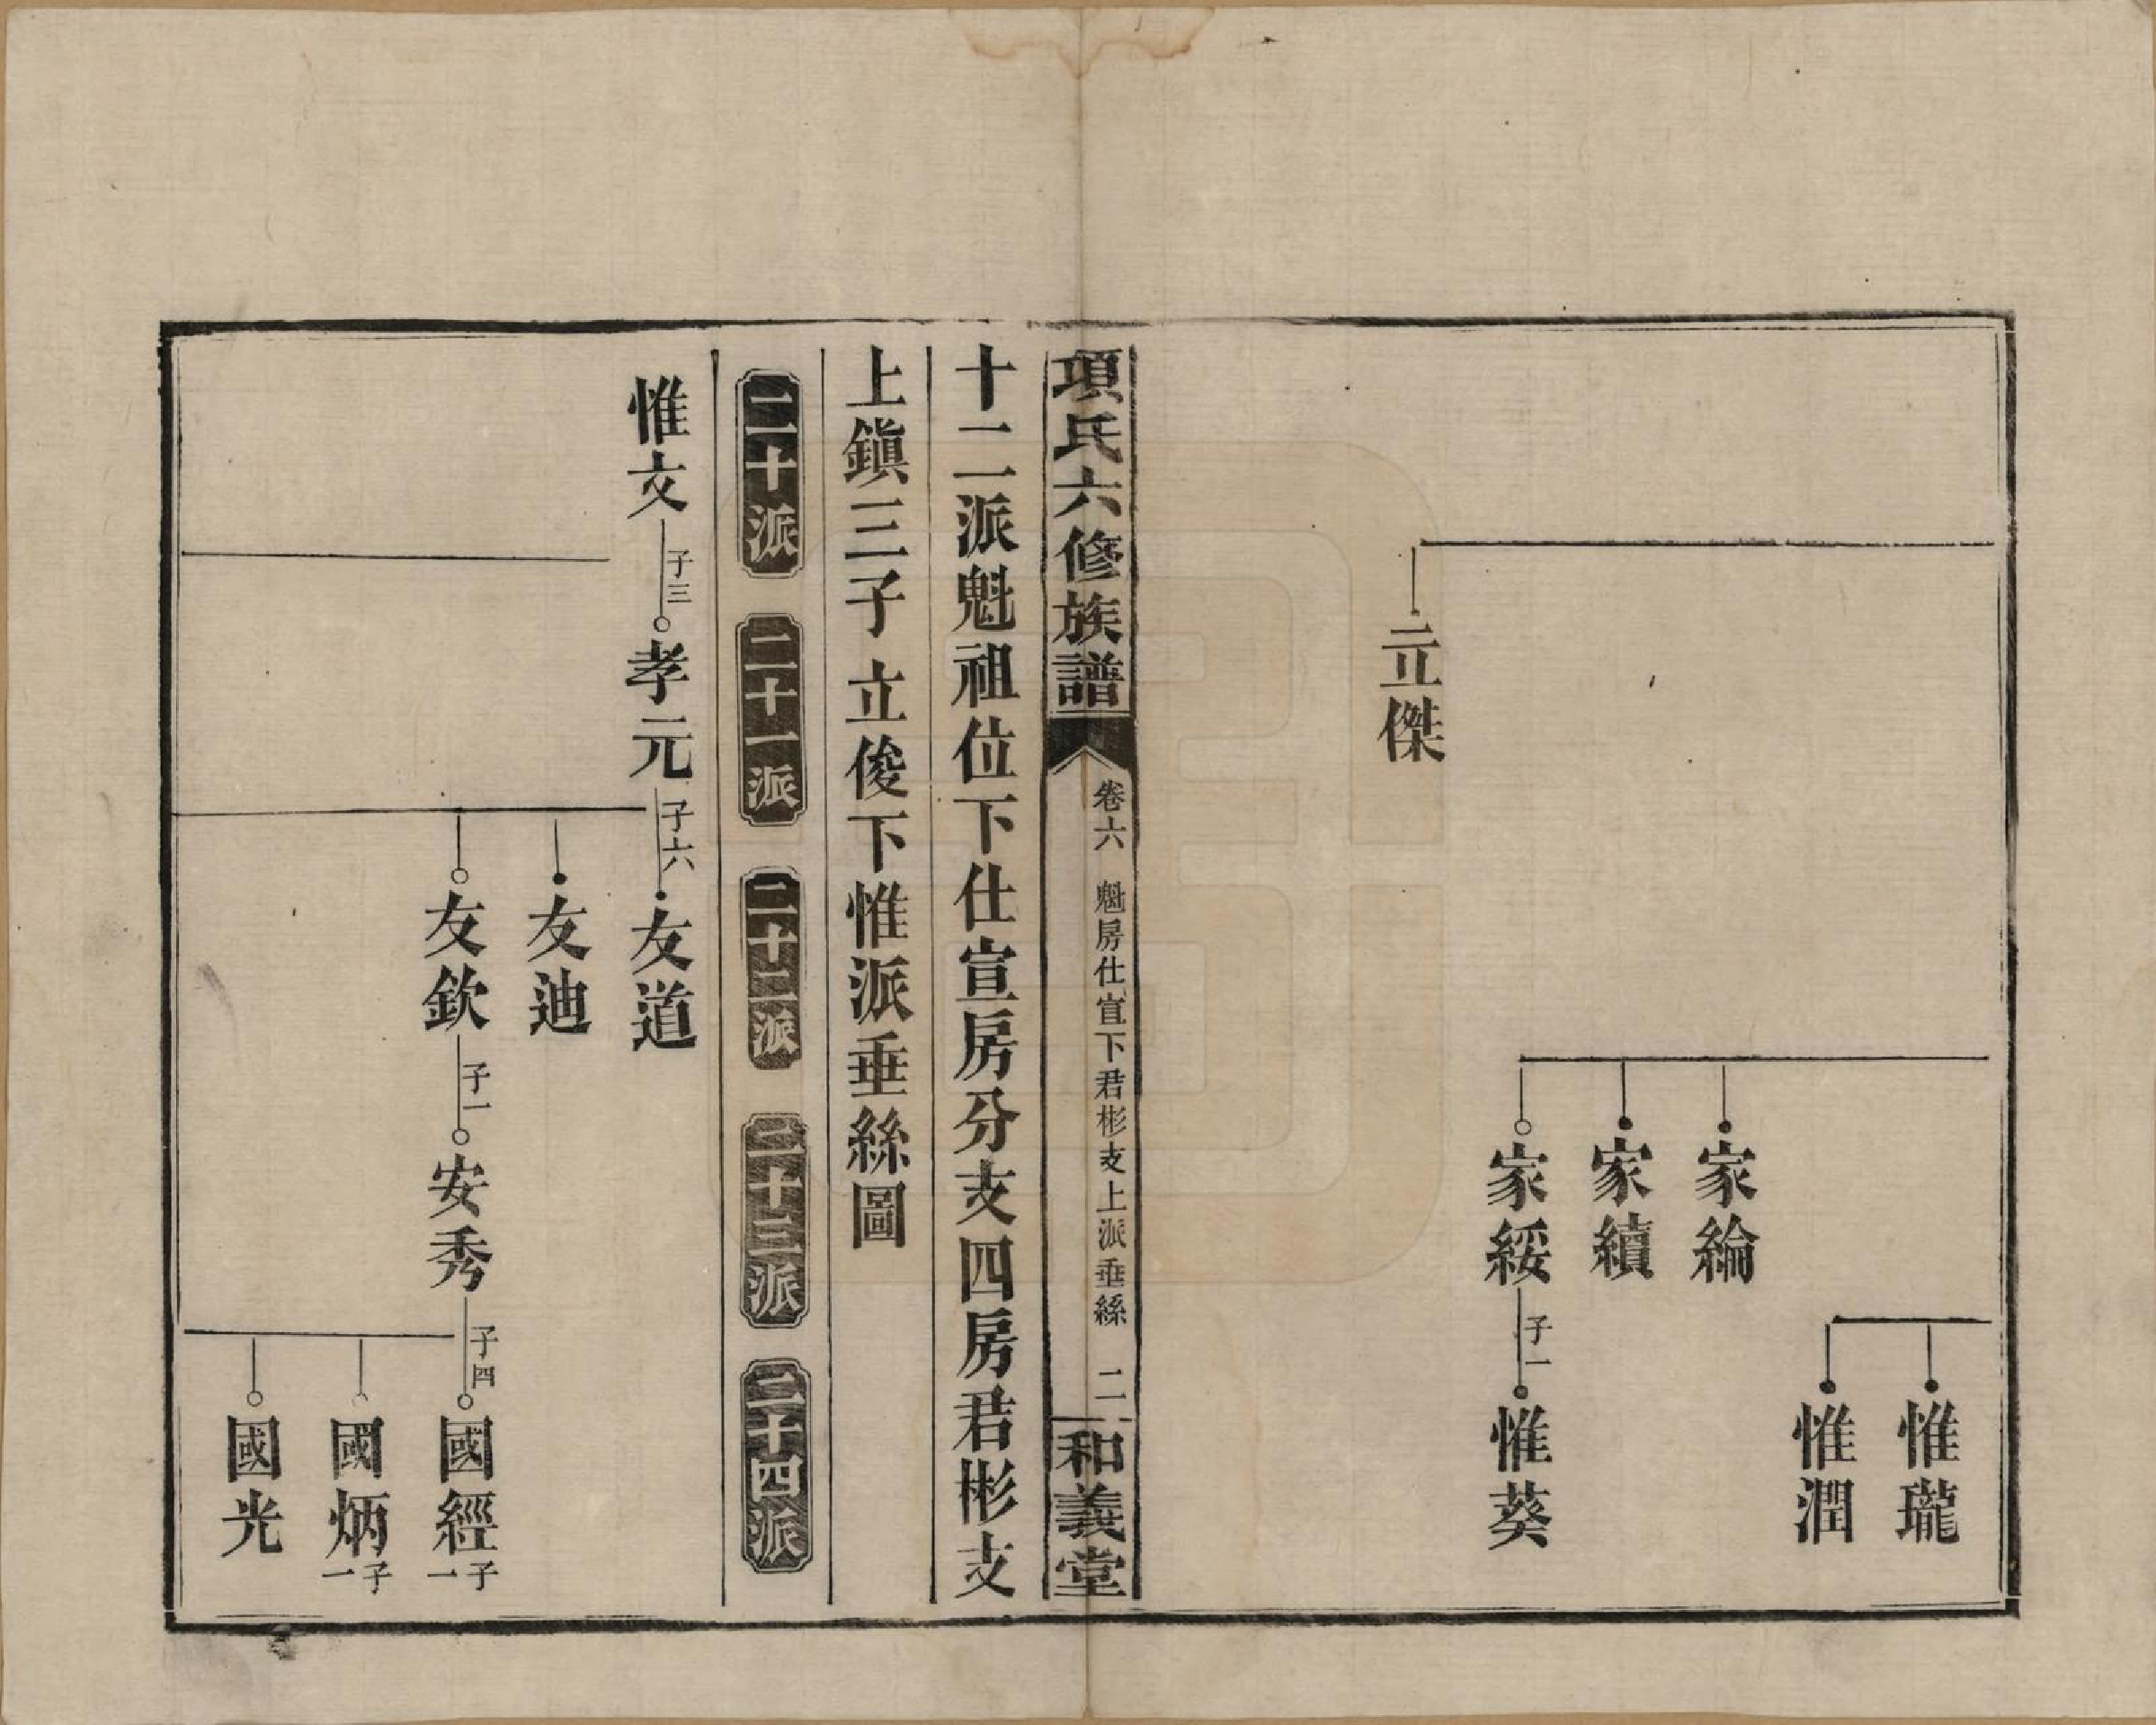 惟瓏
惟潤
家綸
家續
家綏
子一
惟葵
立傑
項氏六修族譜
卷六 魁房仕宣下君彬支上派垂絲 二
和義堂
十二派魁祖位下仕宣房分支四房君彬支
上鎮三子立俊下惟派垂絲圖
二十派
二十一派
二十二派
二十三派
二十四派
惟文
子三
孝元
子六
友道
友迪
友欽
子一
安秀
子四
國經
子一
國炳
子一
國光